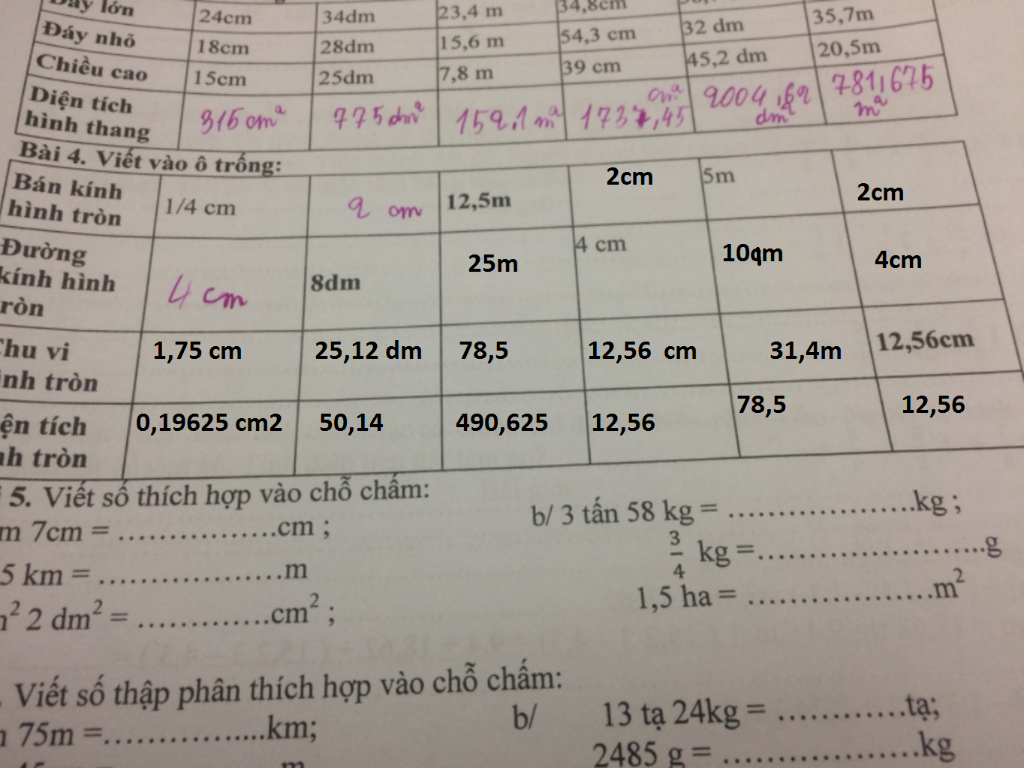 Đáy lớn 24cm 34dm 23,4 m 34,8cm 35,7m
Đáy nhỏ 18cm 28dm 15,6 m 54,3 cm 32 dm 20,5m
Chiều cao 15cm 25dm 7,8 m 39 cm 45,2 dm
Diện tích
hình thang 315cm² 775dm² 152.1m² 1737,45 cm² 2004,62 dm² 781,675 m²
Bài 4. Viết vào ô trống:
Bán kính
hình tròn 1/4 cm 2 cm 12,5m 2cm 5m 2cm
Đường
kính hình
ròn 4 cm 8dm 25m 4 cm 10qm 4cm
hu vi
ình tròn 1,75 cm 25,12 dm 78,5 12,56 cm 31,4m 12,56cm
ện tích
nh tròn 0,19625 cm2 50,14 490,625 12,56 78,5 12,56
5. Viết số thích hợp vào chỗ chấm:
m 7cm = ................cm ; b/ 3 tấn 58 kg = ...................kg ;
5 km = ...................m 3/4 kg =.......................g
2 dm² = .............cm² ; 1,5 ha = ...................m²
Viết số thập phân thích hợp vào chỗ chấm:
75m =.................km; b/ 13 tạ 24kg = .............tạ;
m 2485 g = ....................kg